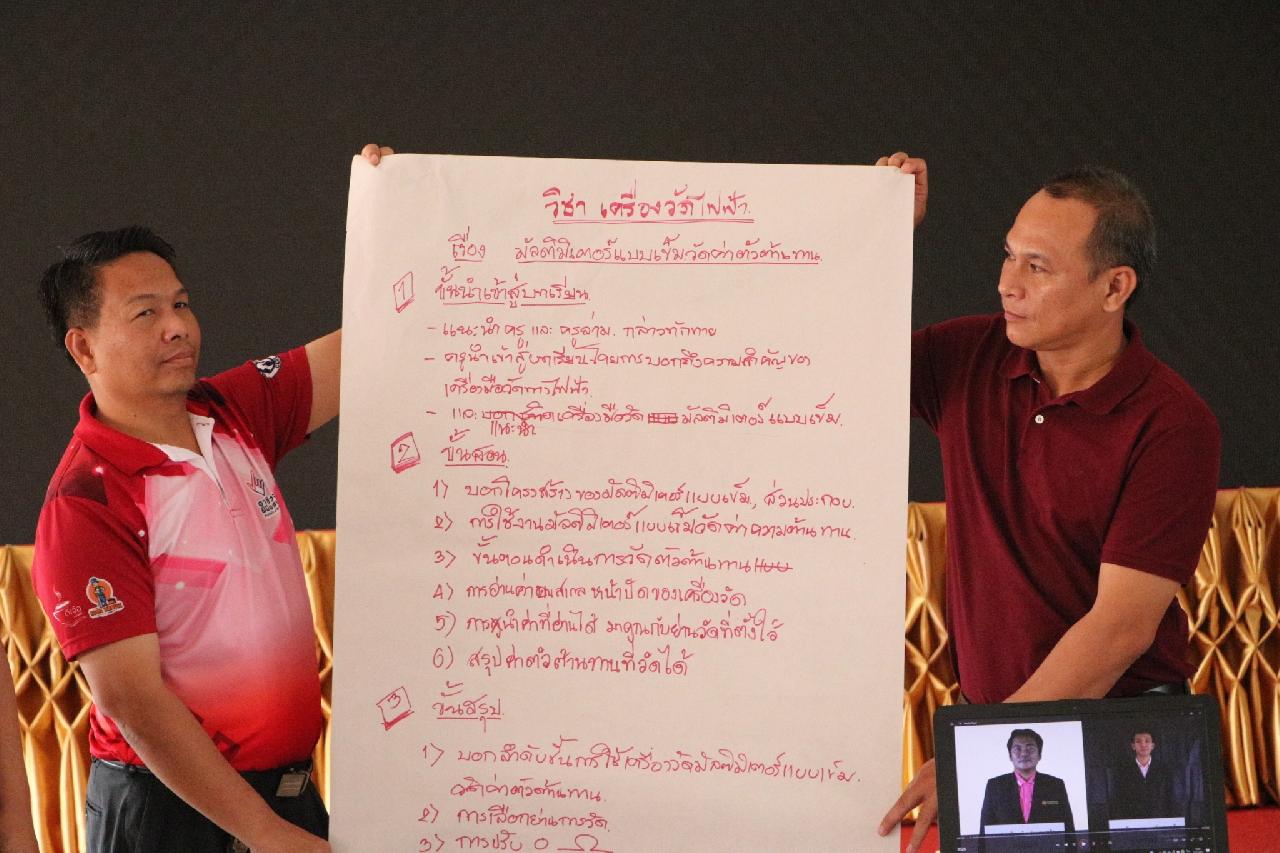 วิชา เครื่องวัดไฟฟ้า.
เรื่อง มัลติมิเตอร์แบบเข็มวัดค่าตัวต้านทาน.
1 ขั้นนำเข้าสู่บทเรียน.
- แนะนำครู และ ครูล่าม. กล่าวทักทาย
- ครูนำเข้าสู่บทเรียนโดยการบอกถึงความสำคัญของ
เครื่องมือวัดทางไฟฟ้า.
- และ เครื่องมือวัด มัลติมิเตอร์แบบเข็ม.
แนะนำ
2 ขั้นสอน.
1) บอกโครงสร้างของมัลติมิเตอร์แบบเข็ม, ส่วนประกอบ.
2) การใช้งานมัลติมิเตอร์แบบเข็มวัดค่าความต้านทาน.
3) ขั้นตอนดำเนินการวัดตัวต้านทาน
4) การอ่านค่าบนสเกลหน้าปัดของเครื่องวัด
5) การนำค่าที่อ่านได้ มาคูณกับย่านวัดที่ตั้งไว้
6) สรุปค่าตัวต้านทานที่วัดได้
3 ขั้นสรุป.
1) บอกลำดับขั้นการใช้เครื่องวัดมัลติมิเตอร์แบบเข็ม.
วัดค่าตัวต้านทาน.
2) การเลือกย่านการวัด.
3) การปรับ 0 Ω